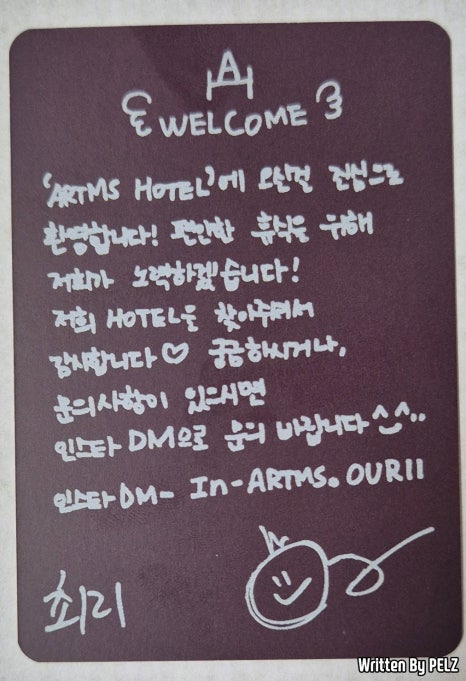 WELCOME
'ARTMS HOTEL'에 오신걸 진심으로
환영합니다! 편안한 휴식을 위해
저희가 노력하겠습니다!
저희 HOTEL을 찾아주셔서
감사합니다♡ 궁금하시거나,
문의사항이 있으시면
인스타 DM으로 문의 바랍니다^^..
인스타 DM- In-ARTMS.OURII
최리
Written By PELZ